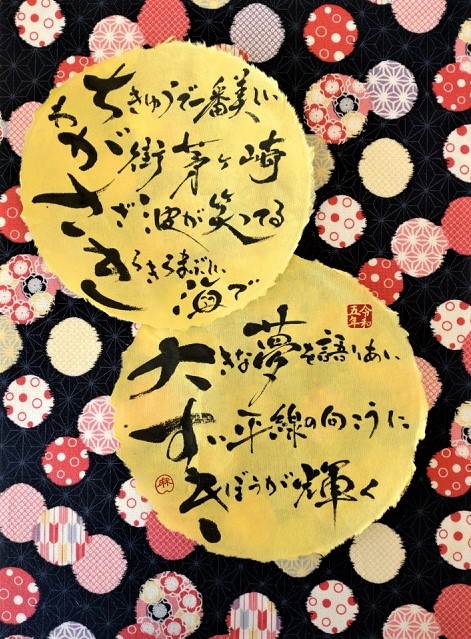 ちきゅうで一番美しい
わが街 茅ヶ崎
さざ波が笑ってる
きらきらまぶしい海で
令和五年
大きな夢を語りあい
すい平線の向こうに
きぼうが輝く
麻